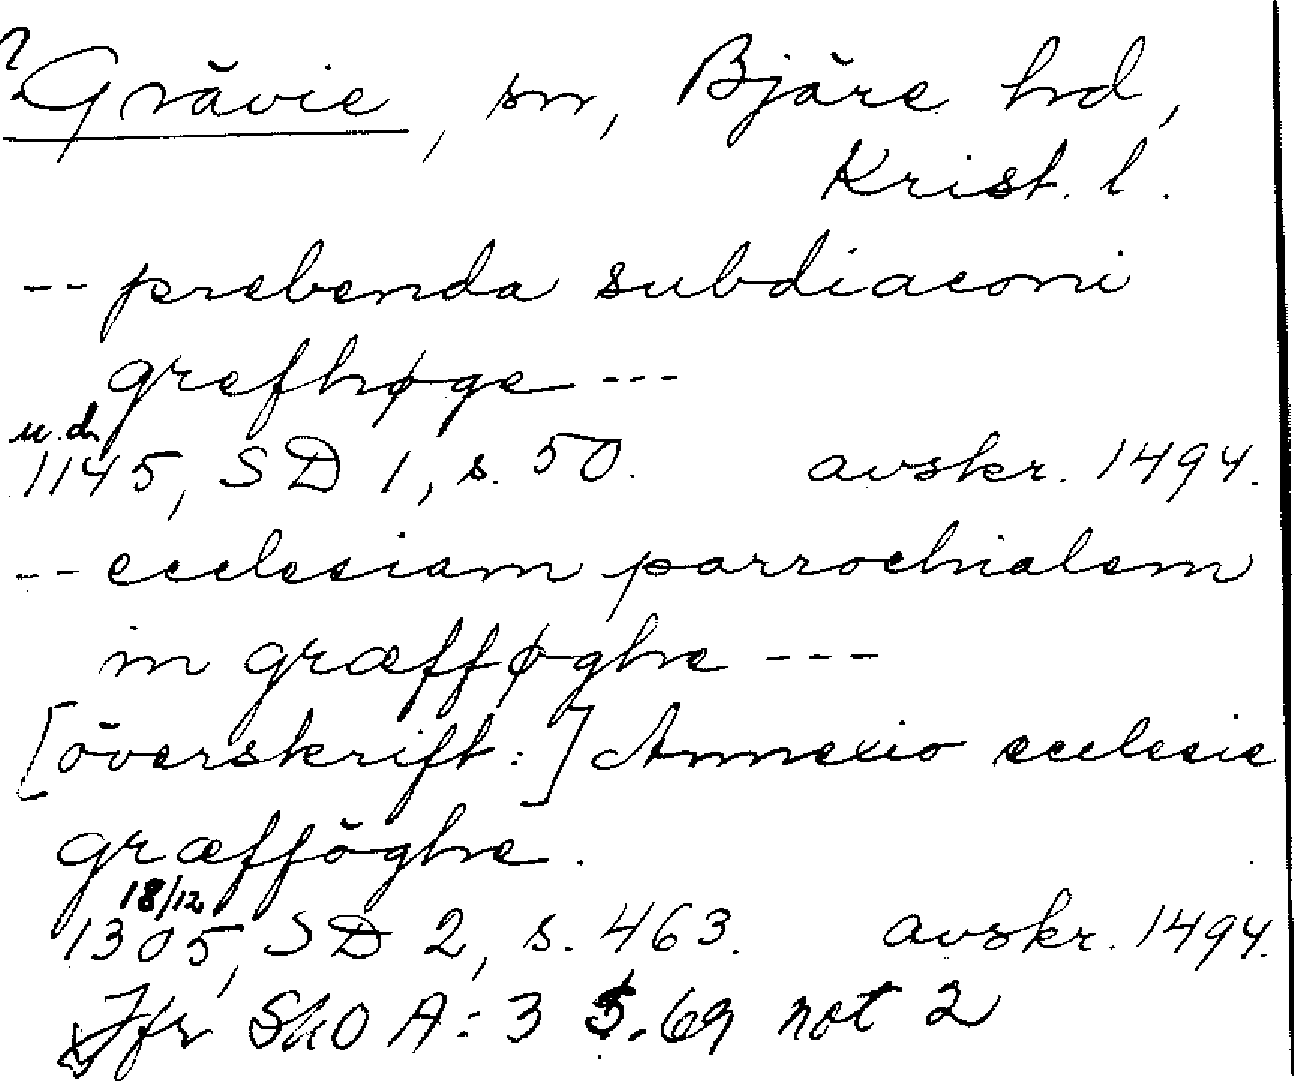 ? Grävie, sn, Bjäre hd,
Krist. l.
-- prebenda subdiaconi
grefhøge ---
u.d.
1145, SD 1, s. 50. avskr. 1494.
-- ecclesiam parrochialem
in græfføghe ---
[överskrift:] Annexio ecclesie
græfföghe.
18/12
1305, SD 2, s. 463. avskr. 1494.
Jfr SkO A:3 s. 69 not 2